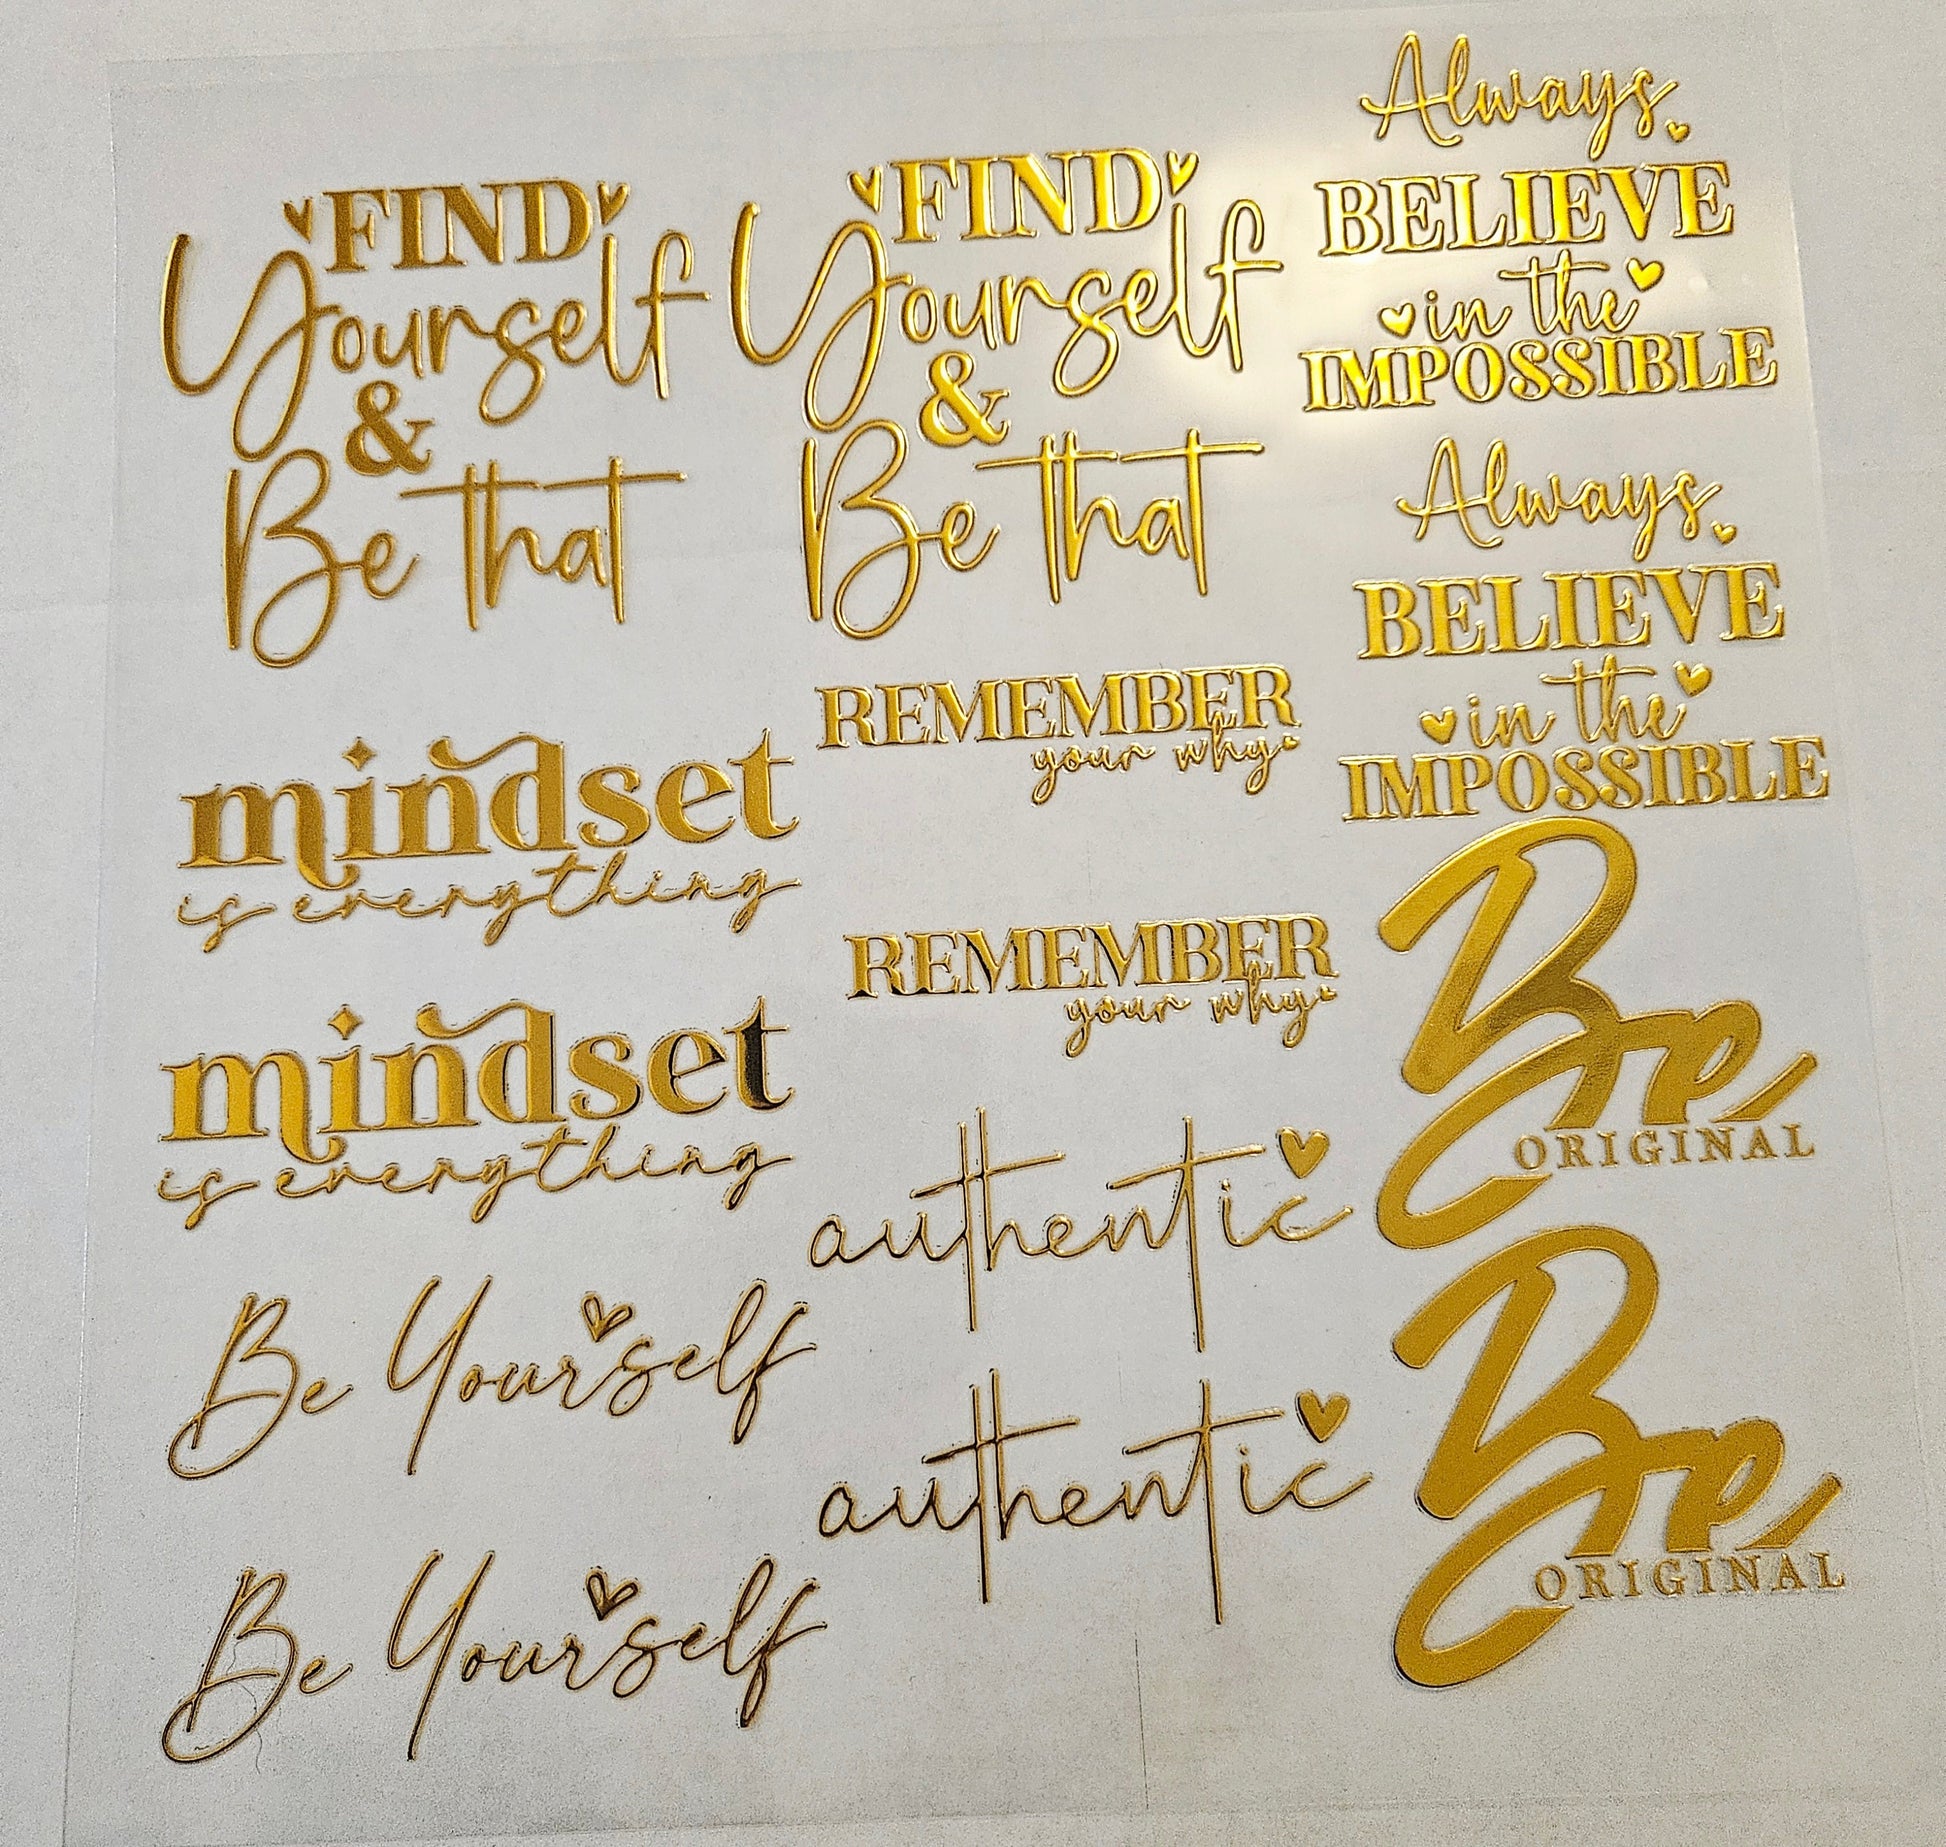 FIND
Yourself
&
Be that
FIND
Yourself
&
Be that
Always
BELIEVE
in the
IMPOSSIBLE
Always
BELIEVE
in the
IMPOSSIBLE
mindset
is everything
REMEMBER
your why
mindset
is everything
REMEMBER
your why
Be
ORIGINAL
authentic
Be Yourself
authentic
Be
ORIGINAL
Be Yourself